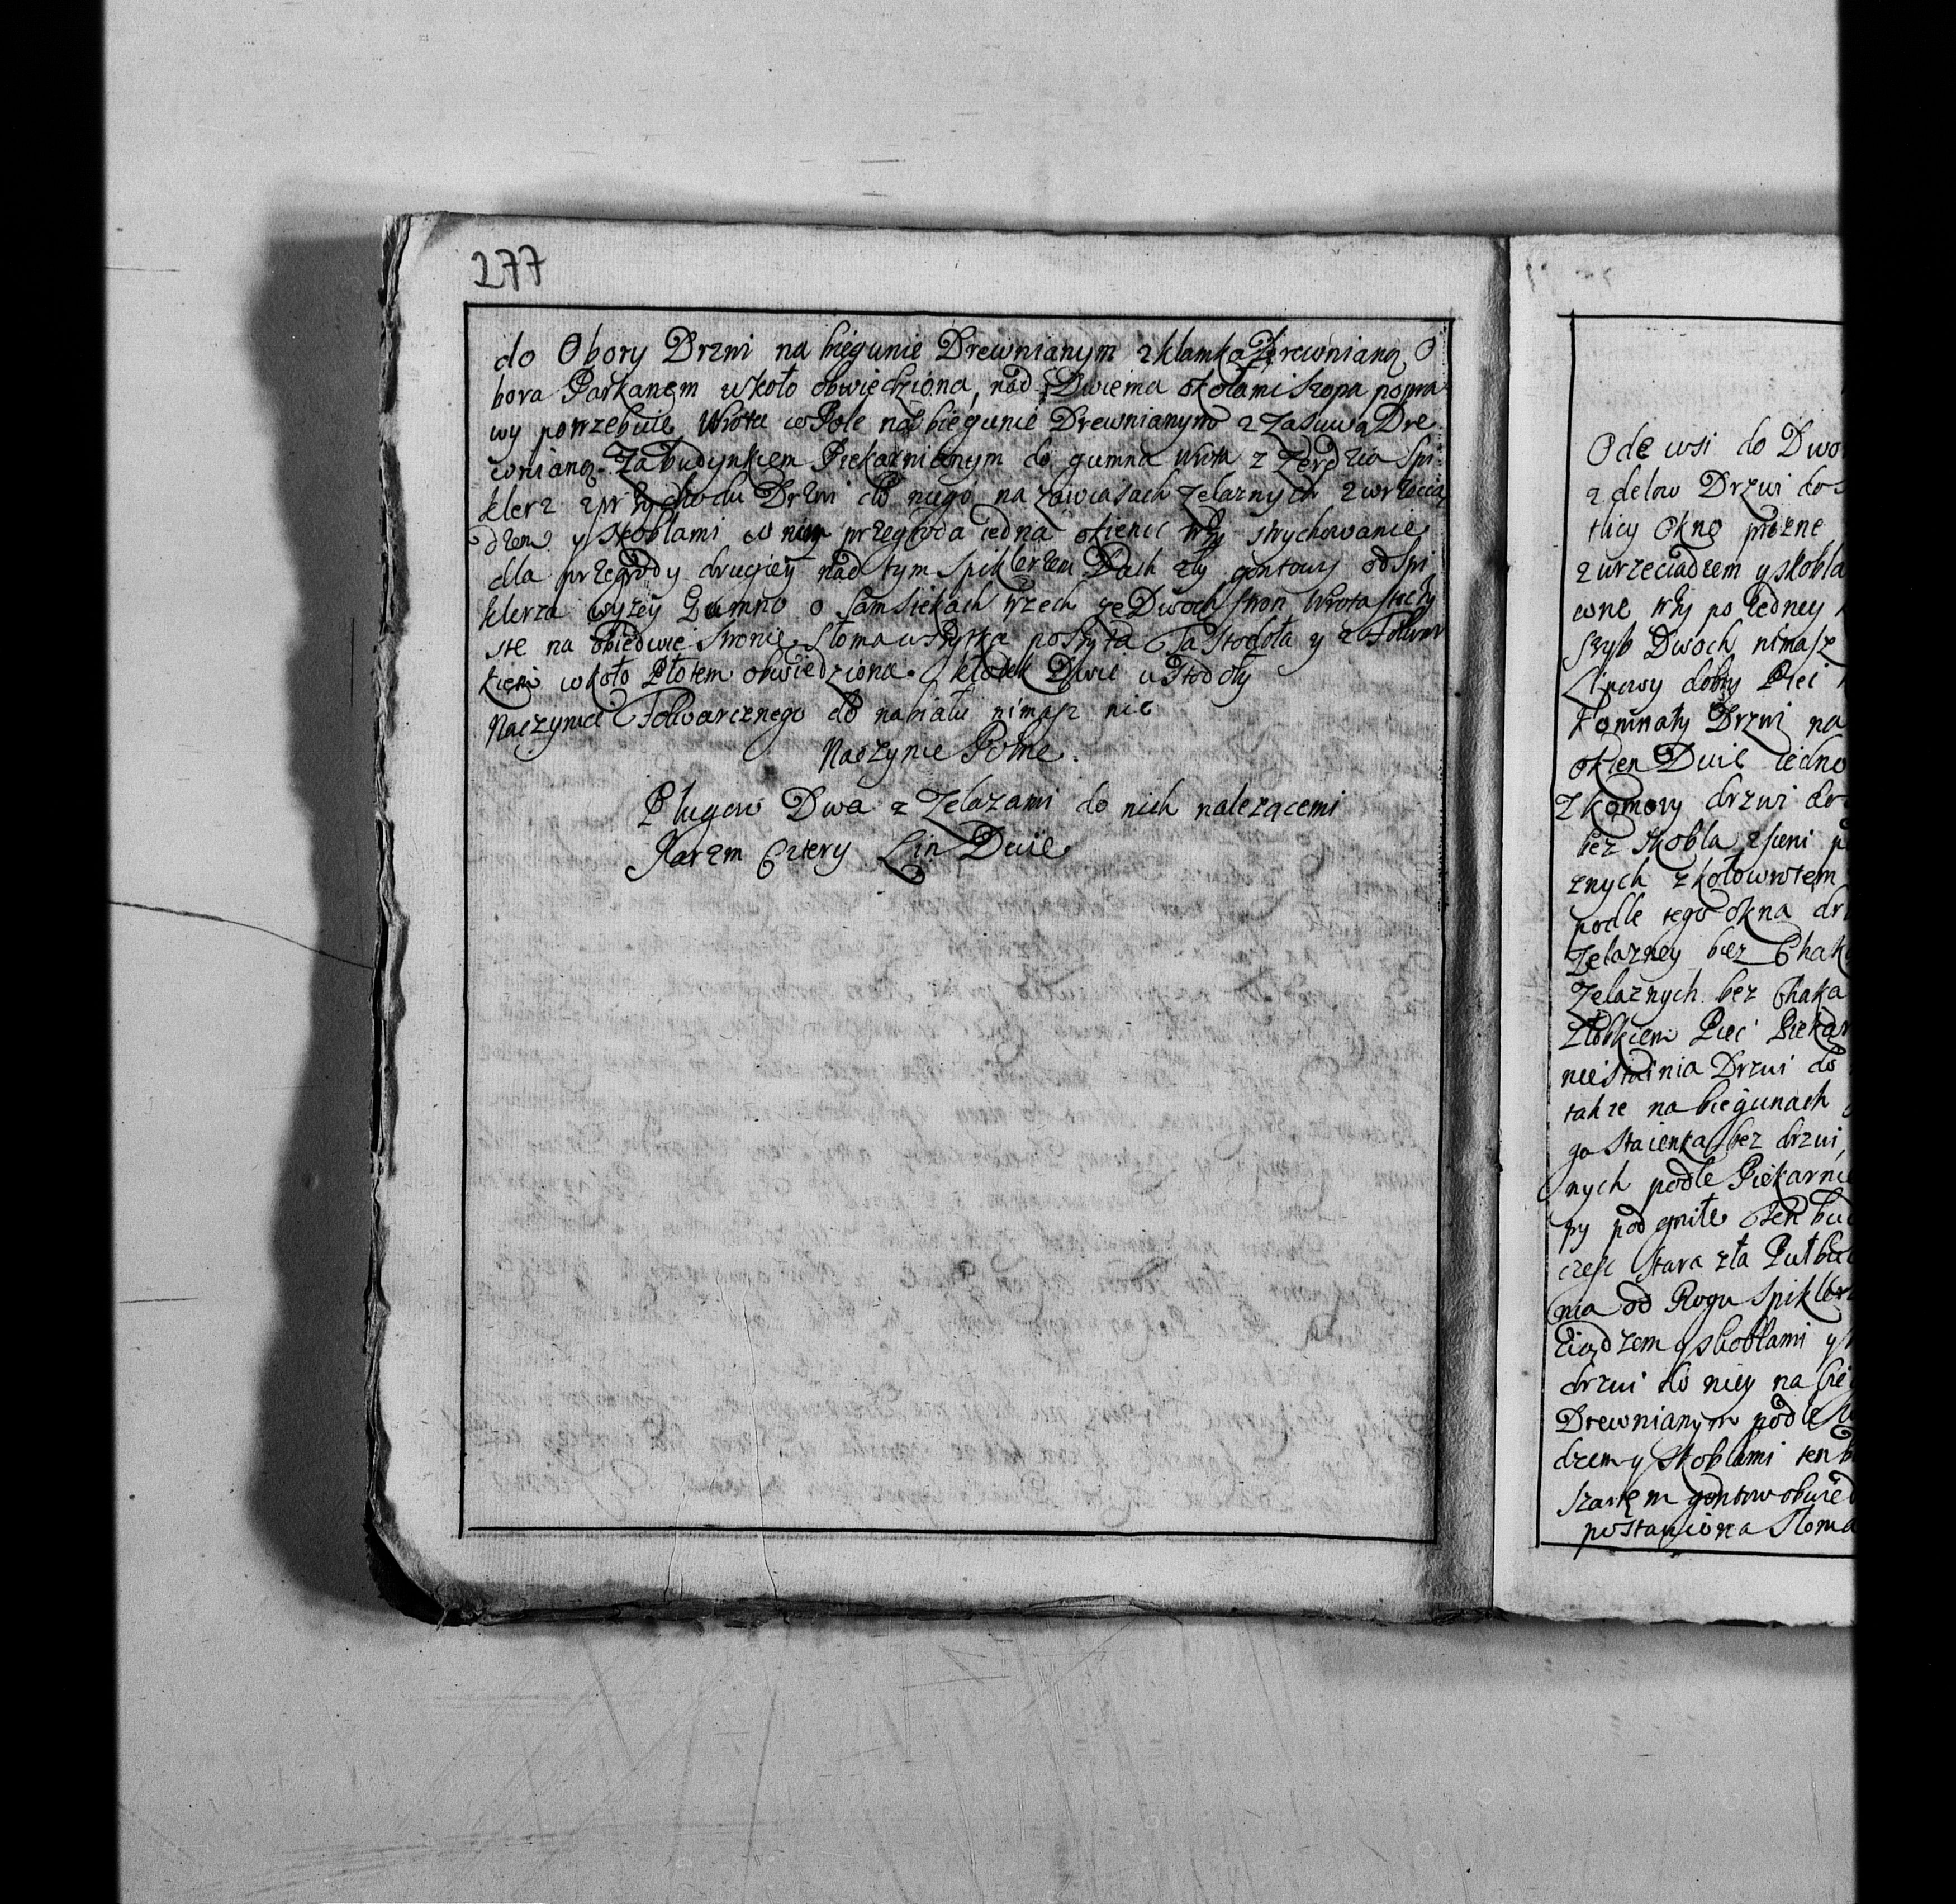 277
do Obory Drzwi na biegunie Drewnianym z klamką Drewnianą O
bora Parkanem wkoło obwiedziona, nad Dwiema okołami szopa popra
wy potrzebuie Wrota w Pole na biegunie Drewnianym z Zasuwą Dre
wnianą. Za budynkiem Piekarnianym do gumna Wrota z Zerdzia Spi
klerz z przychodu Drzwi do niego na zawiasach zelaznych z wrzecią
dzem y skoblami w nim przegroda iedna okienic trzy strychowanie
dla przegrody drugiey nad tym Spiklerzem Dach zły gontowy od Spi
klerza wyzey Gumno o Samsiekach trzech ze Dwoch stron Wrota
ste na obiedwie stronie Słomą wszytka poszyta Ta Stodoła y z Folwar
kiem wkoło Płotem obwiedziona. kłotek Dwie u Stodoły
Naczynia Folwarcznego do nabiału nimasz nic
Naczynie Polne.
Pługow Dwa z Zelazami do nich nalezącemi
Jarzm Cztery Lin Dwie
Ode wsi do Dwo
z delow Drzwi do
tlicy Okno prozne
z wrzeciądzem y skobla
wne trzy po iedney
szyb Dwoch nimasz
Linowy dobry Piec
komnaty Drzwi na
okien Dwie iedno
Z komory drzwi do
bez skobla z sieni
znych z kołowrotem
podle tego okna
Zelazney bez Chak
Zelaznych bez Chaka
Złobkiem Piec Piekar
nie Stainia Drzwi do
takze na biegunach
go Staienka bez drzwi
nych podle Piekarnie
py pod gniłe Ten bud
czesc stara zła Put
nia od Rogu Spikler
ciądzem y skoblami y
drzwi do niey na bieg
Drewnianym podle
dzem y skoblami ten b
szartem gontow obwied
postawiona Słoma